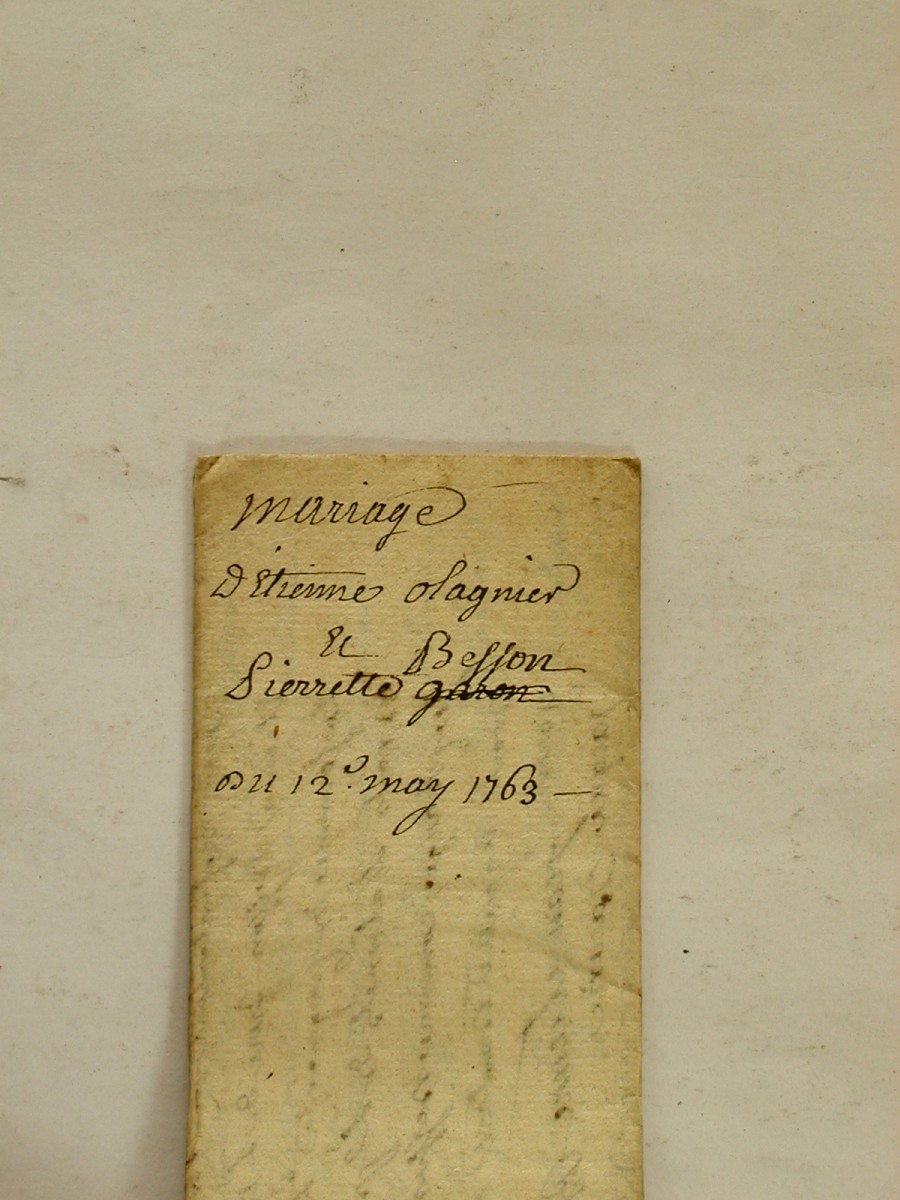 mariage
D'Etienne olagnier
Et Besson
Pierrette garon
Du 12e. may 1763 —